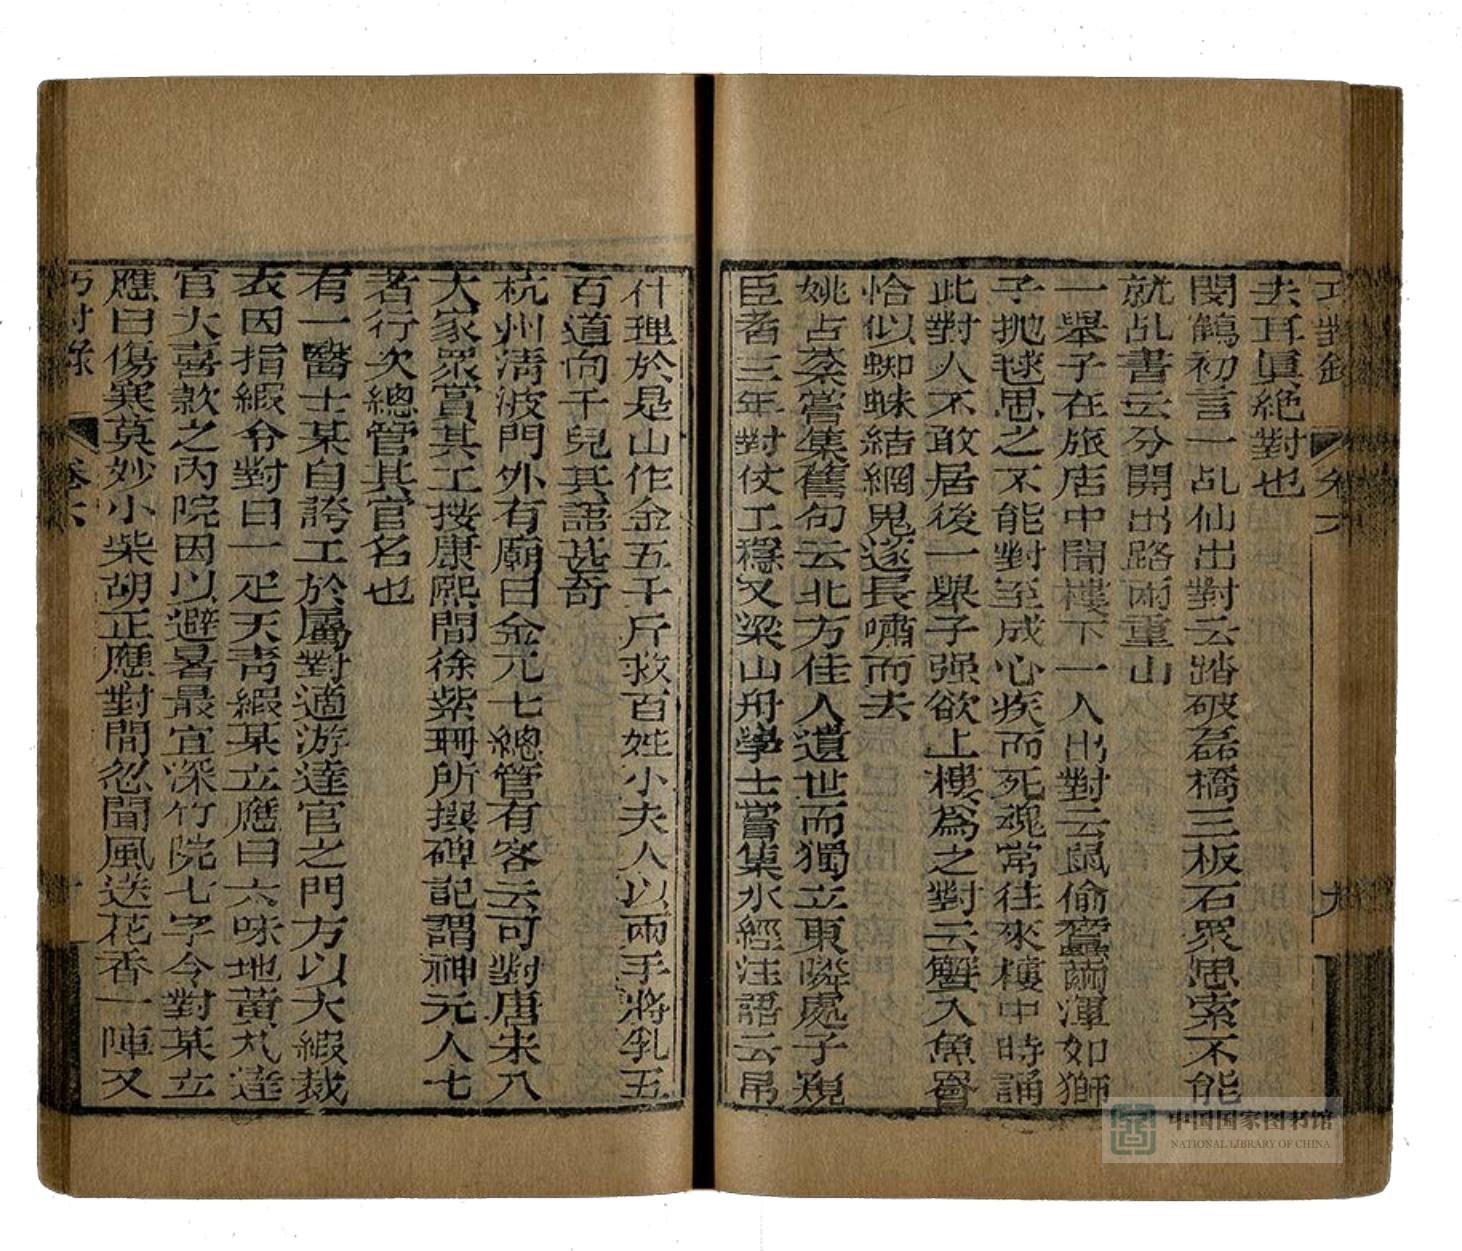 巧對錄 卷六 九
去耳眞絶對也
閔鶴初言一乩仙出對云踏破磊橋三板石眾思索不能
就乩書云分開出路兩重山
一舉子在旅店中聞樓下一人出對云鼠偷蠶繭渾如獅
子抛毬思之不能對至成心疾而死魂常往來樓中時誦
此對人不敢居後一舉子强欲上樓爲之對云蟹入魚罾
恰似蜘蛛結網鬼遂長嘯而去
姚古棻嘗集舊句云北方佳人遺世而獨立東隣處子窺
臣者三年對仗工穩又梁山舟學士嘗集水經注語云吊
什理於是山作金五千斤救百姓小夫人以兩手將乳五
百道向千兒其語甚奇
杭州淸波門外有廟曰金元七總管有客云可對唐宋八
大家眾賞其工按康熙間徐紫珊所撰碑記謂神元人七
者行次總管其官名也
有一醫士某自誇工於屬對適游達官之門方以大緞裁
衣因指緞令對曰一疋天靑緞某立應曰六味地黃丸達
官大喜款之內院因以避暑最宜深竹院七字令對某立
應曰傷寒莫妙小柴胡正應對間忽聞風送花香一陣又
巧對錄 卷六 十
中国国家图书馆
NATIONAL LIBRARY OF CHINA